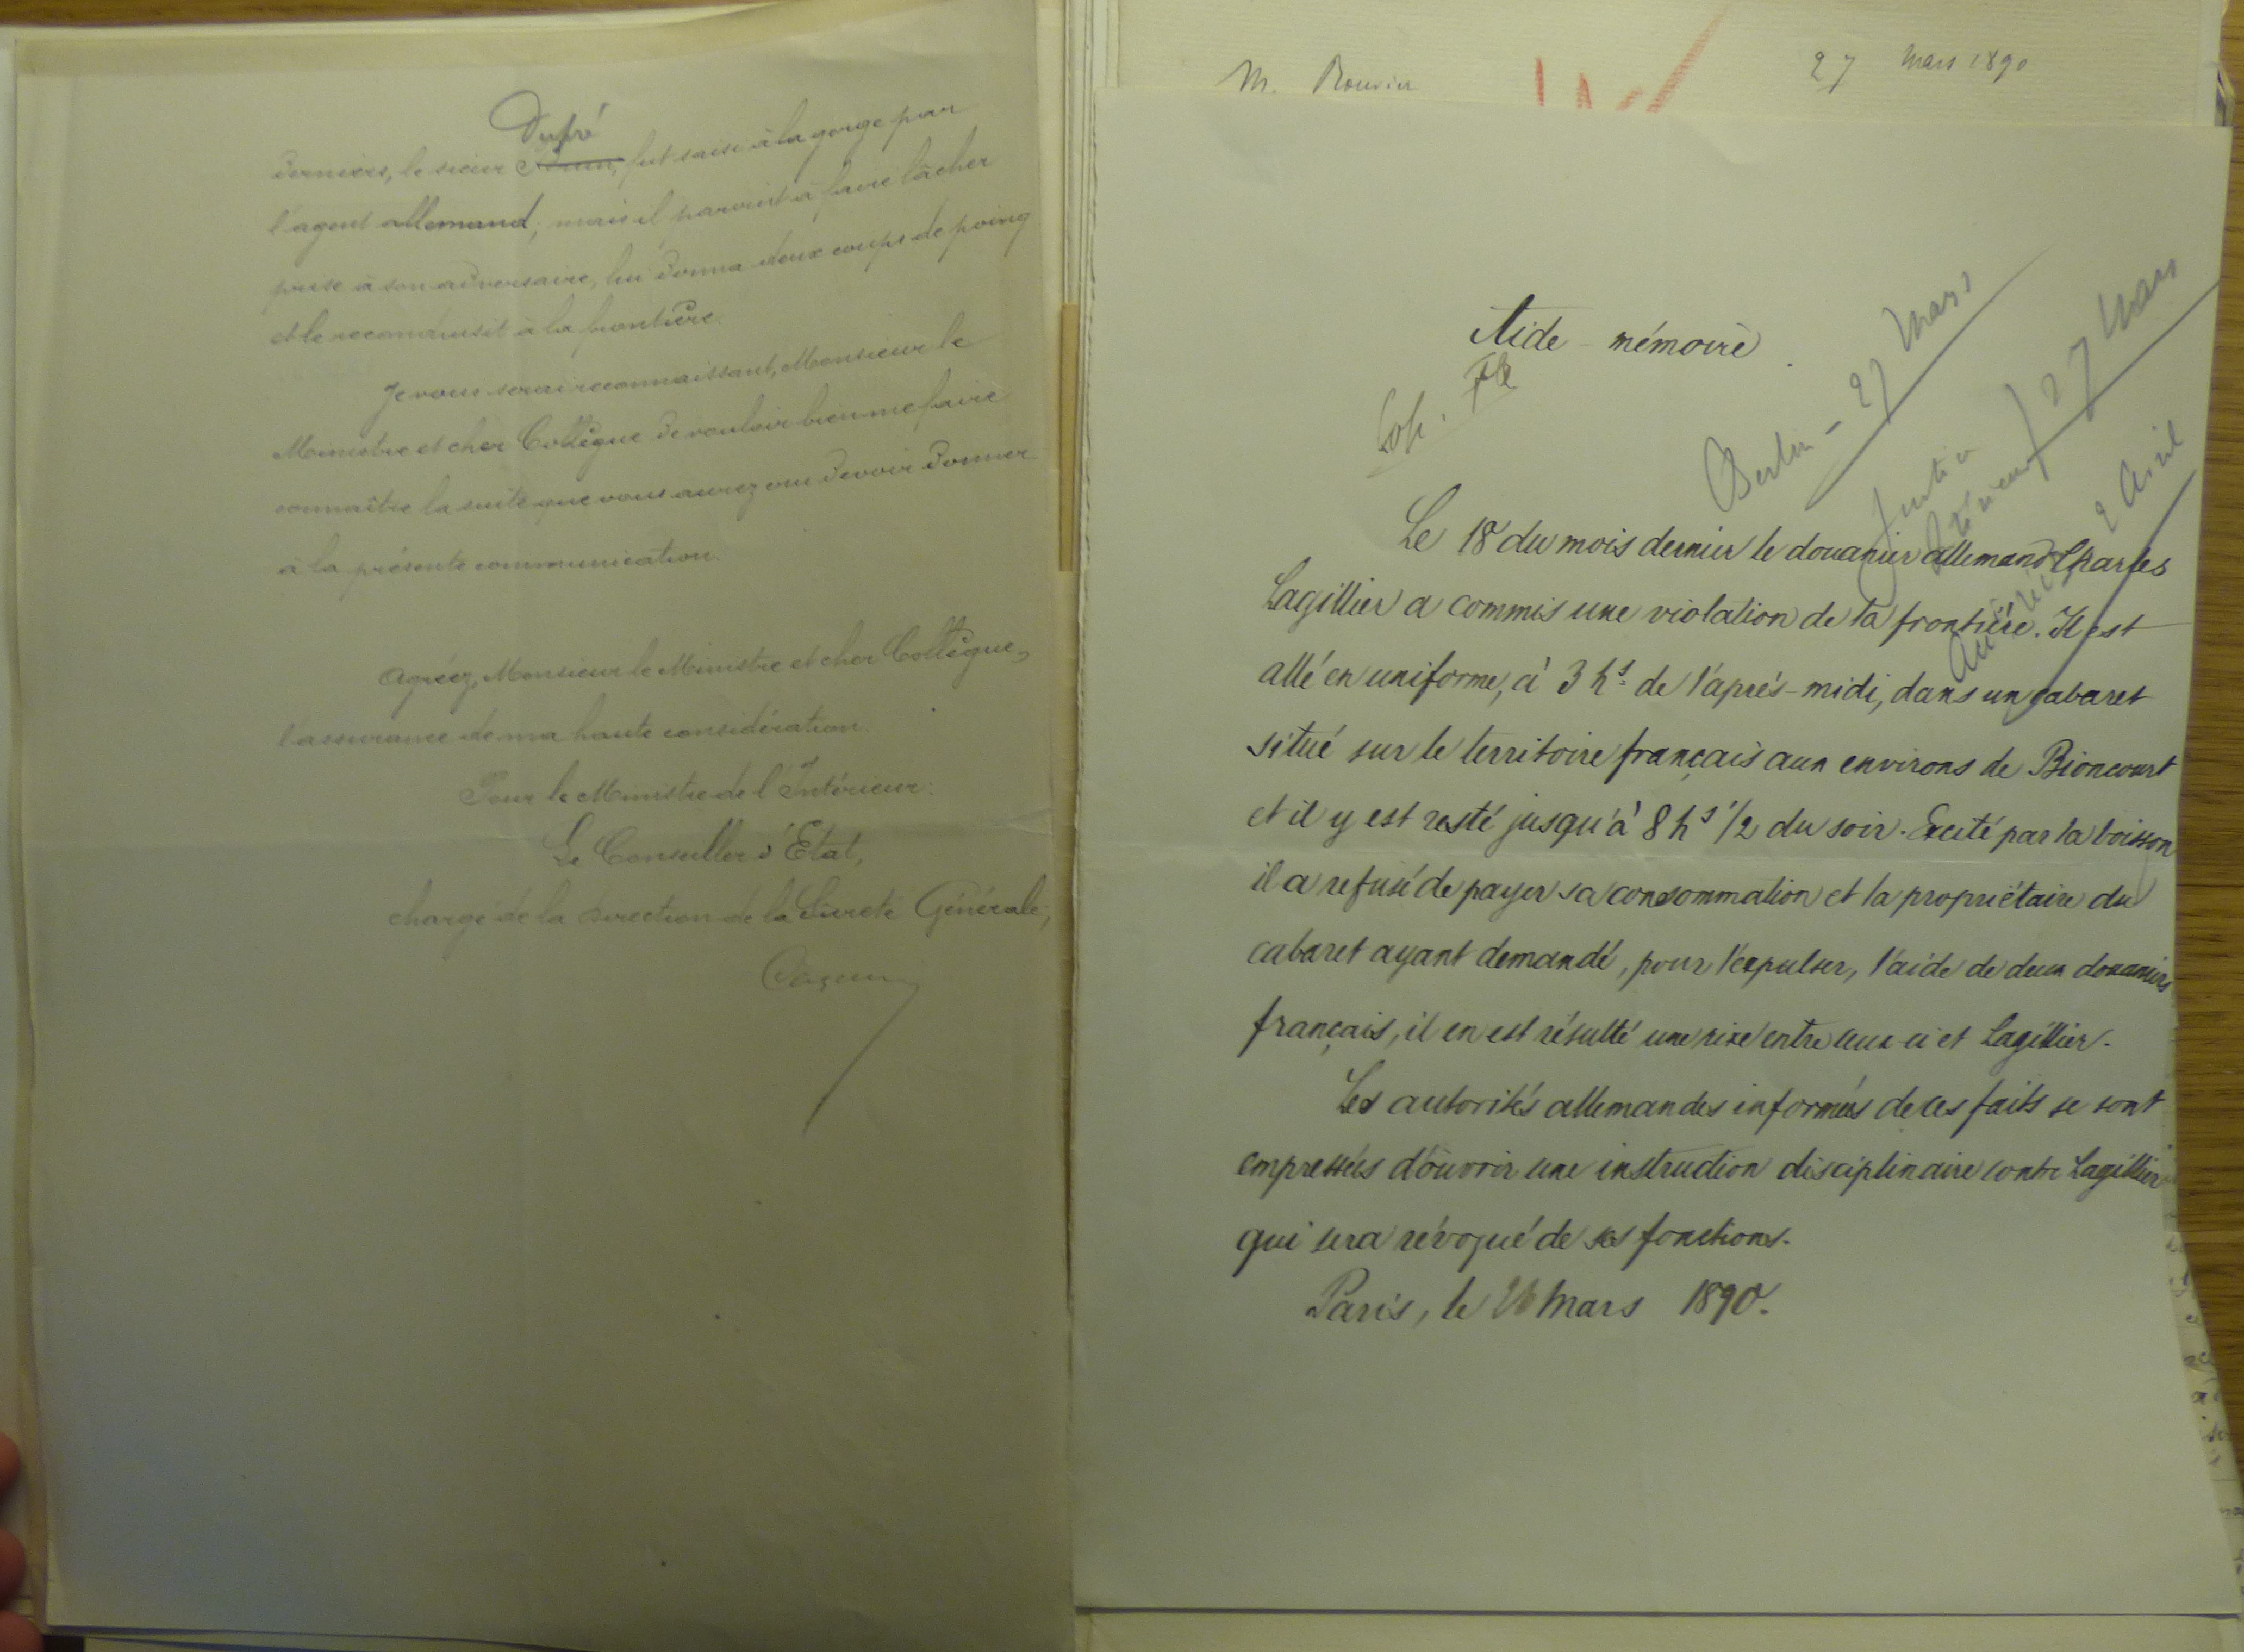 Dupré
derniers, le sieur fut saisi à la gorge par
l'agent allemand, mais il parvint à faire lâcher
prise à son adversaire, lui donna deux coups de poing
et le reconduisit à la frontière.
Je vous serai reconnaissant, Monsieur le
Ministre et cher Collègue de vouloir bien me faire
connaître la suite que vous aurez cru devoir donner
à la présente communication.
Agréez, Monsieur le Ministre et cher Collègue,
l'assurance de ma haute considération.
Pour le Ministre de l'Intérieur:
Le Conseiller d'Etat,
chargé de la Direction de la Sûreté Générale,
M. Rouvier
27 Mars 1890
Aide-mémoire
Berlin - 27 Mars
Justice
Intérieur } 27 Mars
2 Avril
Le 18 du mois dernier le douanier allemand Charles
Lagillier a commis une violation de la frontière. Il est
allé en uniforme, à 3 hs. de l'après-midi, dans un cabaret
situé sur le territoire français aux environs de Bioncourt
et il y est resté jusqu'à 8 hs 1/2 du soir. Excité par la boisson
il a refusé de payer sa consommation et la propriétaire du
cabaret ayant demandé, pour l'expulser, l'aide de deux douaniers
français, il en est résulté une rixe entre ceux-ci et Lagillier.
Les autorités allemandes informées de ces faits se sont
empressées d'ouvrir une instruction disciplinaire contre Lagillier
qui sera révoqué de ses fonctions.
Paris, le 26 Mars 1890.